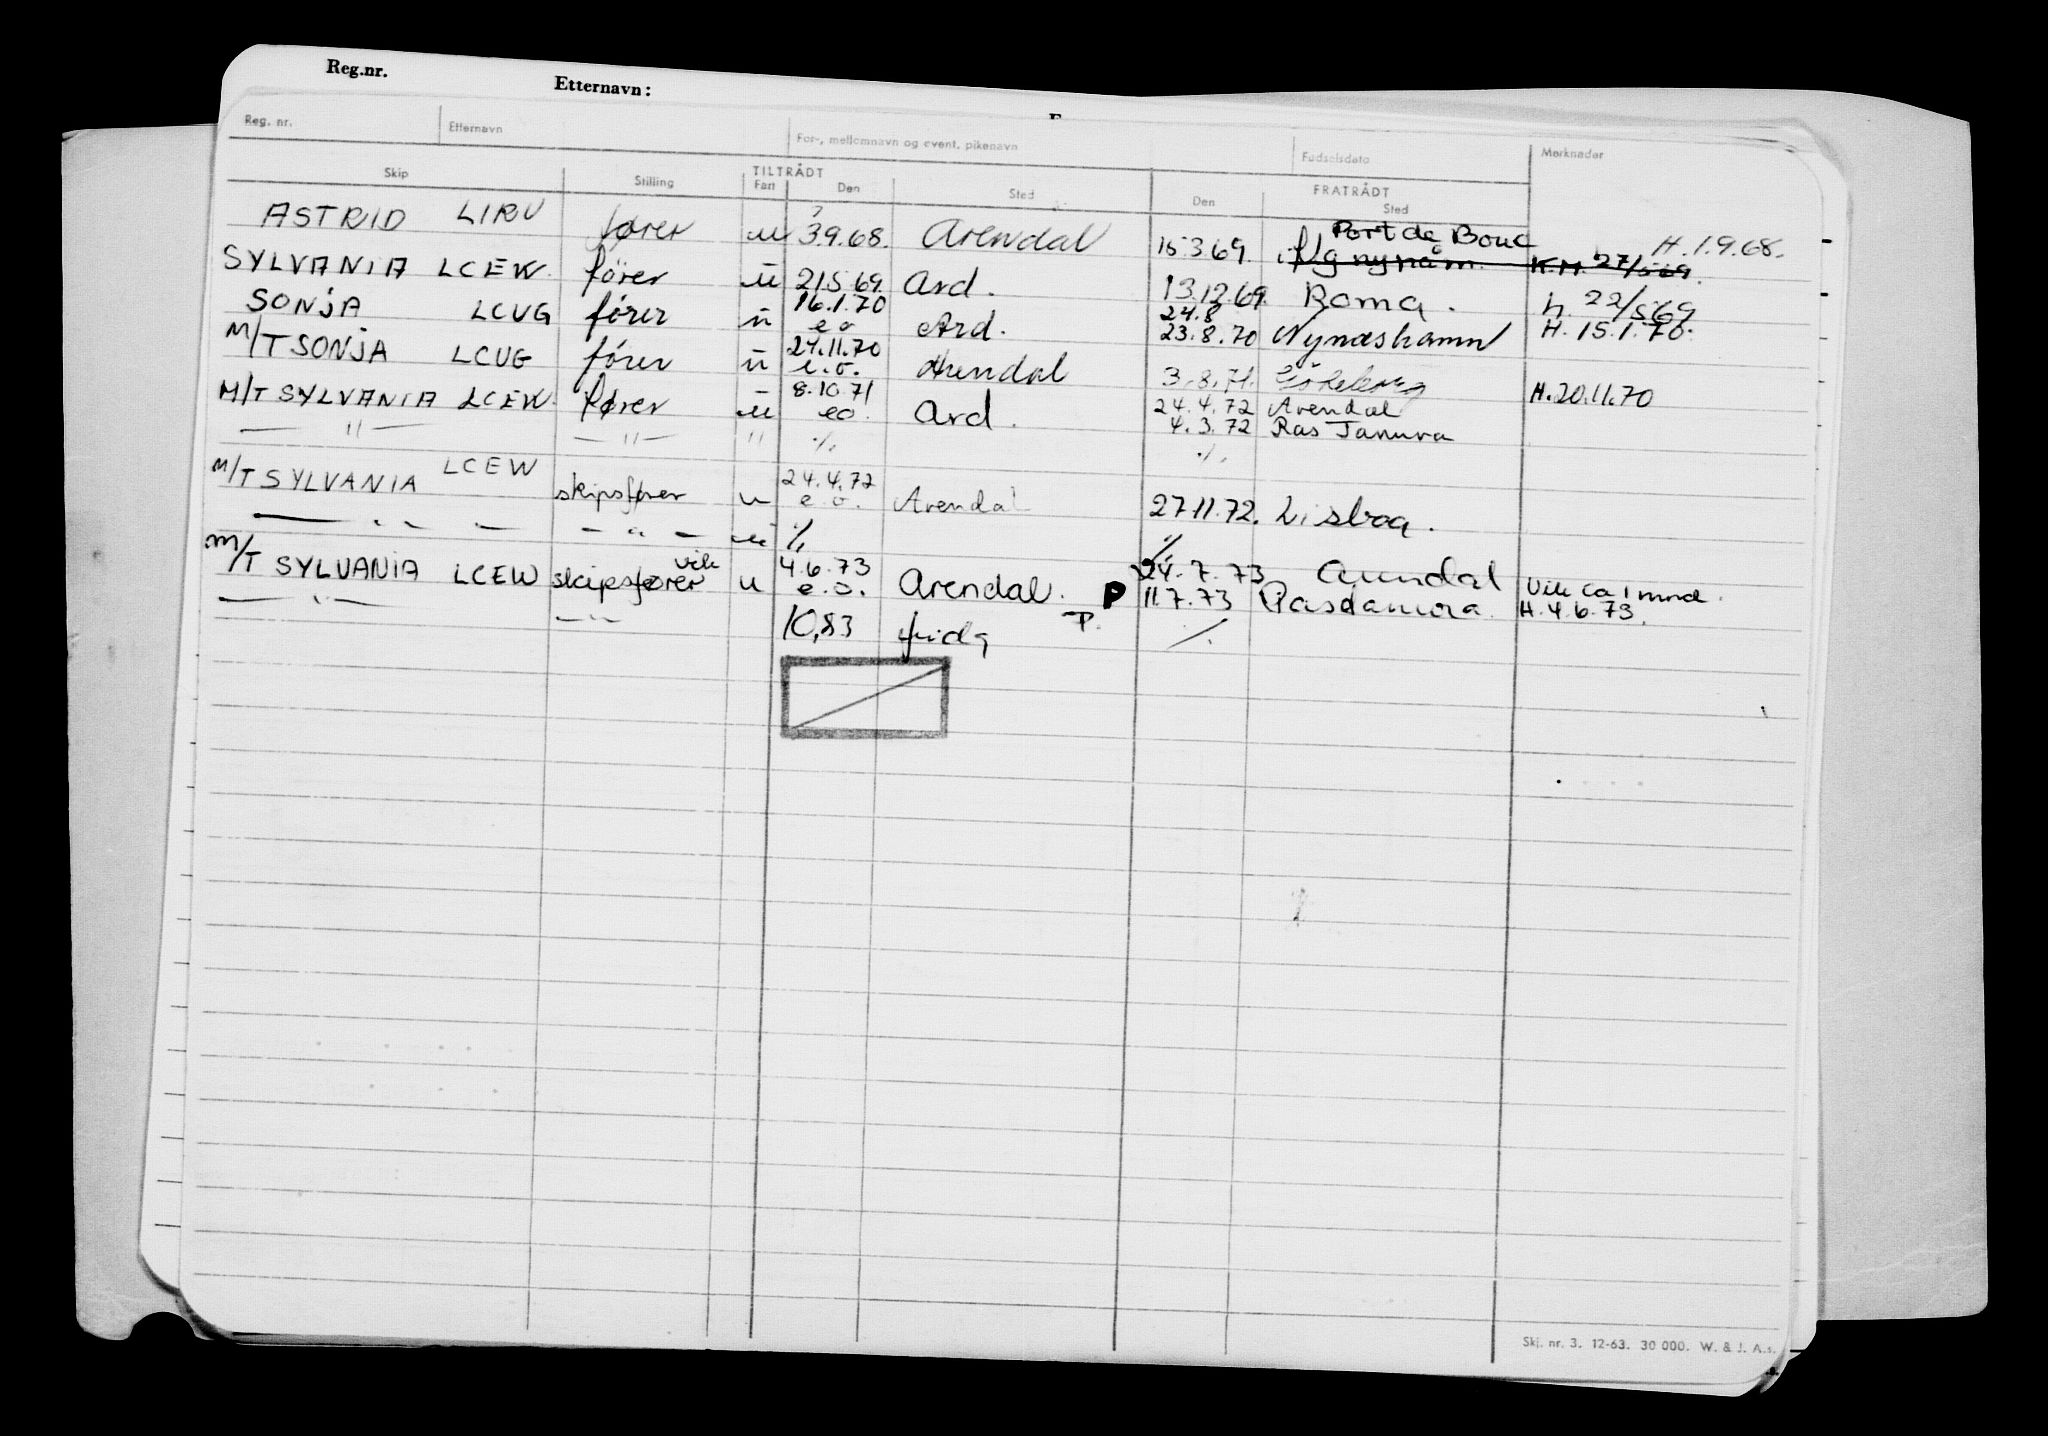 Reg.nr. Etternavn:
Reg. nr. Etternavn For-, mellomnavn og event. pikenavn Fødselsdato Merknader
Skip Stilling TILTRÅDT FRATRÅDT
Fart Den Sted Den Sted
ASTRID LIRU fører u 3.9.68. Arendal 15.3.69. Port de Bouc H.1.9.68.
SYLVANIA LCEW. fører u 21.5.69. Ard. 13.12.69. Roma. K.H. 27/5 69.
h. 22/5 69
SONJA LCUG fører u 16.1.70 e.o Ard. 24.8 23.8.70 Nynæshamn H. 15.1.70.
M/T SONJA LCUG fører u 24.11.70 e.o. Arendal 3.8.71. Göteborg H.20.11.70
M/T SYLVANIA LCEW. fører u 8.10.71 eo. Ard. 24.4.72 Arendal
— " — — " — " ·/. 4.3.72 Ras Tanura
·/.
M/T SYLVANIA LCEW skipsfører u 24.4.72 e.o. Arendal 27.11.72. Lisboa.
— " — — " — u ·/. ·/.
M/T SYLVANIA LCEW skipsfører vik u 4.6.73 e.o. Arendal. 24.7.73 Arendal Vik ca 1 mnd.
— " — — " P 11.7.73 Rastanura. H.4.6.73.
10,83 P. ·/.
Skj. nr. 3. 12-63. 30 000. W. & J. A.s.